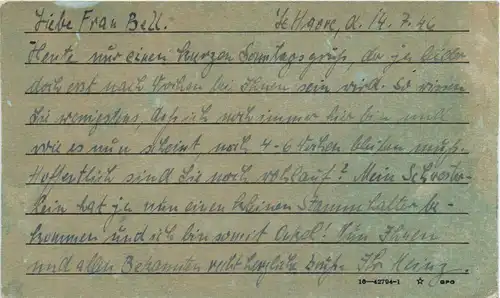 Liebe Frau Bell. Le Havre, d. 14.7.46
Heute nur einen kurzen Sonntagsgruß, der ja leider
doch erst nach Wochen bei Ihnen sein wird. So wissen
Sie wenigstens, daß ich noch immer hier bin und
wie es nun scheint, noch 4-6 Wochen bleiben muß.
Hoffentlich sind Sie noch wohlauf? Mein Schwester-
lein hat ja nun einen kleinen Stammhalter be-
kommen und ich bin somit Onkel! Nun Ihnen
und allen Bekannten recht herzliche Grüße Ihr Heinz.
16-42794-1 ☆ GPO